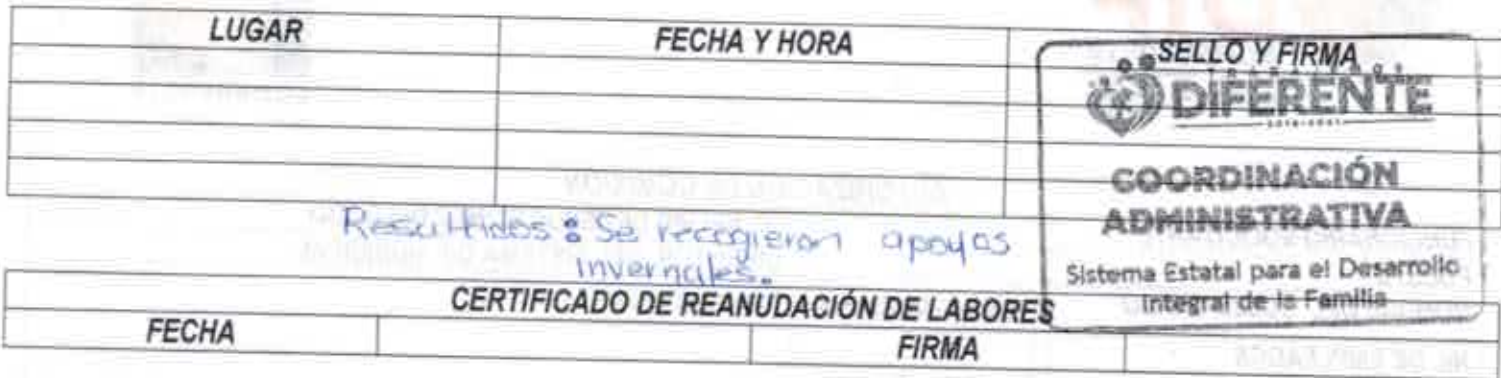 LUGAR FECHA Y HORA SELLO Y FIRMA
DIFERENTE
COORDINACIÓN
ADMINISTRATIVA
Sistema Estatal para el Desarrollo
Integral de la Familia
Resultados: Se recogieron apoyos
invernales.
CERTIFICADO DE REANUDACIÓN DE LABORES
FECHA FIRMA